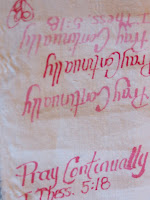 I Thess. 5:18
Pray Continually
Pray Continually
Pray Continually
Pray Contenually
I Thess. 5:18